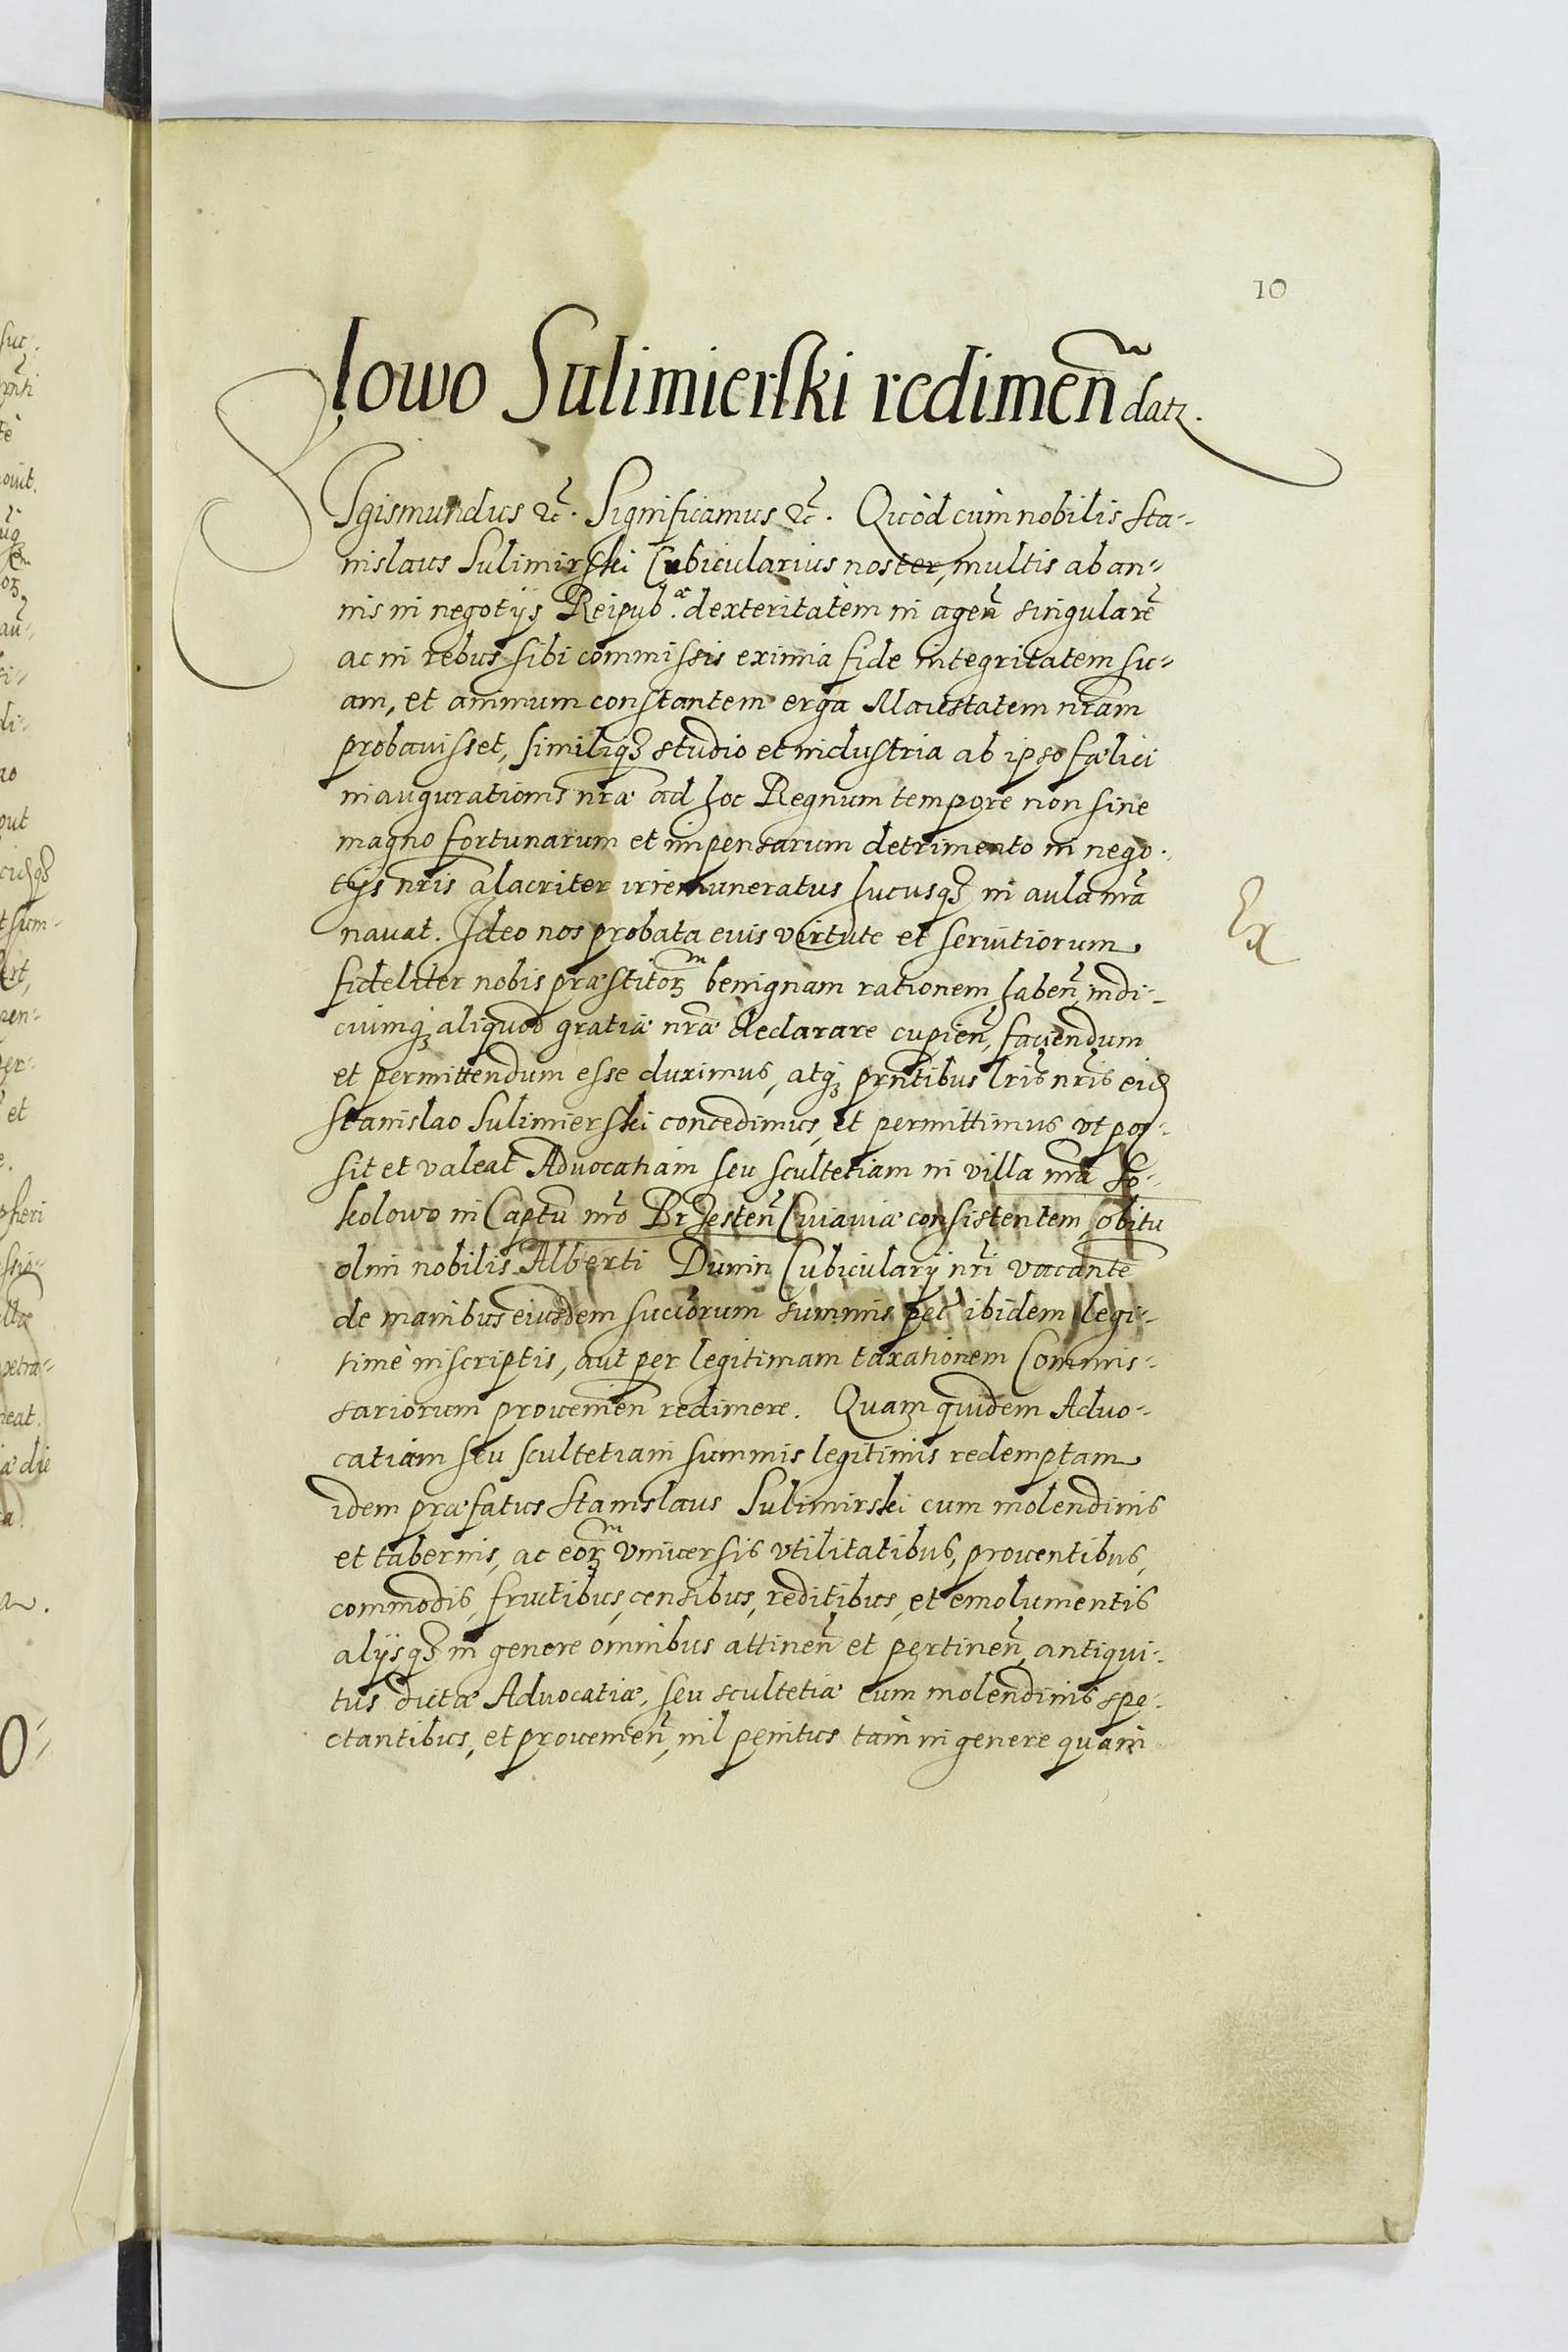 10
lowo Sulimierski redimen̄ datz.
SIgismundus &c. Significamus &c. Quòd cùm nobilis Sta-
nislaus Sulimirski Cubicularius noster, multis ab an-
nis in negotijs Reipub.æ dexteritatem in agen̄ singularē
ac in rebus sibi commissis eximia fide integritatem su-
am, et animum constantem erga Maiestatem nr̄am
probauisset, similiqʒ studio et industria ab ipso fælici
inaugurationis nr̄æ ad hoc Regnum tempore non sine
magno fortunarum et impensarum detrimento in nego-
tijs nr̄is alacriter irremuneratus hucusqʒ in aula nr̄a
nauat. Ideo nos probata euis virtute et seruitiorum
fideliter nobis præstitoꝝ benignam rationem haben̄, indi-
ciumqʒ aliquod gratiæ nr̄æ declarare cupien̄, faciendum
et permittendum esse duximus, atqʒ prn̄tibus lr̄is nr̄is eid
Stanislao Sulimierski concedimus, et permittimus vt pos-
sit et valeat Aduocatiam seu scultetiam in villa nr̄a So-
kolowo in Captū nr̄o Brzesten̄ Cuiauiæ consistentem, obitu
olim nobilis Alberti Dunin Cubicularij nr̄i vacantē
de manibus eiusdem succorum summis pec̄ ibidem legi-
timè inscriptis, aut per legitimam taxationem Commis-
sariorum prouenien̄ redimere. Quam quidem Aduo-
catiam seu scultetiam summis legitimis redemptam
idem præfatus Stanislaus Sulimirski cum molendinis
et tabernis, ac eoꝝ vniuersis vtilitatibus, prouentibus,
commodis, fructibus, censibus, reditibus, et emolumentis
alijsqʒ in genere omnibus attinen̄ et pertinen̄, antiqui-
tus dictæ Aduocatiæ, seu scultetiæ cum molendinis spe-
ctantibus, et prouenien̄, nil penitus tam in genere quàm
Ex